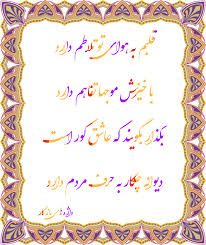 قلبم به هوای تو تلاطم دارد
با خیزش موجها تفاهم دارد
بگذار بگویند که عاشق کور است
دیوانه چکار به حرف مردم دارد